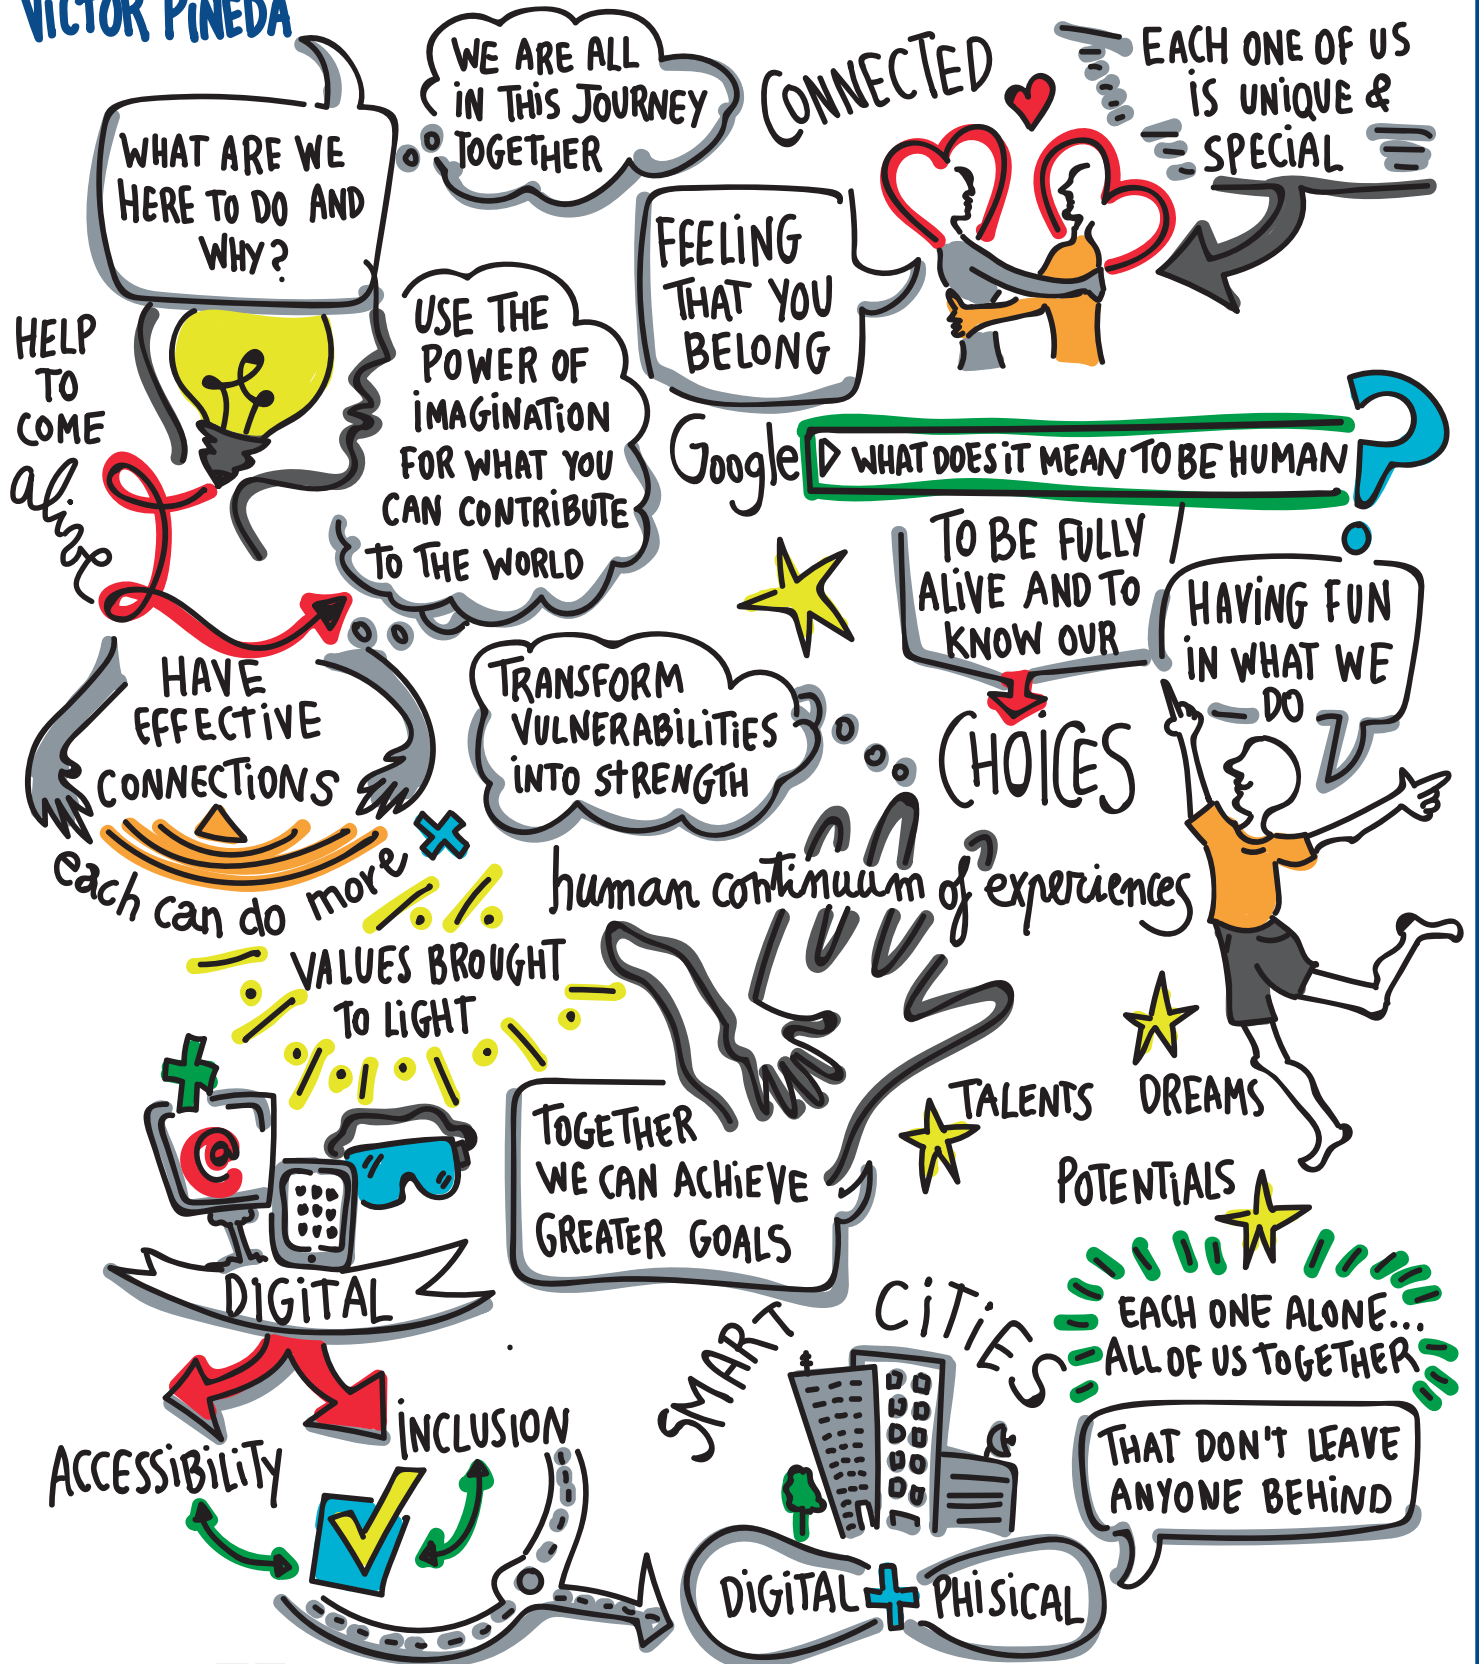 VICTOR PINEDA
WHAT ARE WE
HERE TO DO AND
WHY?
WE ARE ALL
IN THIS JOURNEY
TOGETHER
CONNECTED
EACH ONE OF US
IS UNIQUE &
SPECIAL
FEELING
THAT YOU
BELONG
HELP
TO
COME
alive
USE THE
POWER OF
IMAGINATION
FOR WHAT YOU
CAN CONTRIBUTE
TO THE WORLD
Google
WHAT DOES IT MEAN TO BE HUMAN
?
TO BE FULLY
ALIVE AND TO
KNOW OUR
CHOICES
HAVING FUN
IN WHAT WE
DO
HAVE
EFFECTIVE
CONNECTIONS
each can do more
TRANSFORM
VULNERABILITIES
INTO STRENGTH
human continuum of experiences
VALUES BROUGHT
TO LIGHT
TOGETHER
WE CAN ACHIEVE
GREATER GOALS
TALENTS
DREAMS
POTENTIALS
@
DIGITAL
ACCESSIBILITY
INCLUSION
SMART CITIES
EACH ONE ALONE...
ALL OF US TOGETHER
THAT DON'T LEAVE
ANYONE BEHIND
DIGITAL + PHISICAL